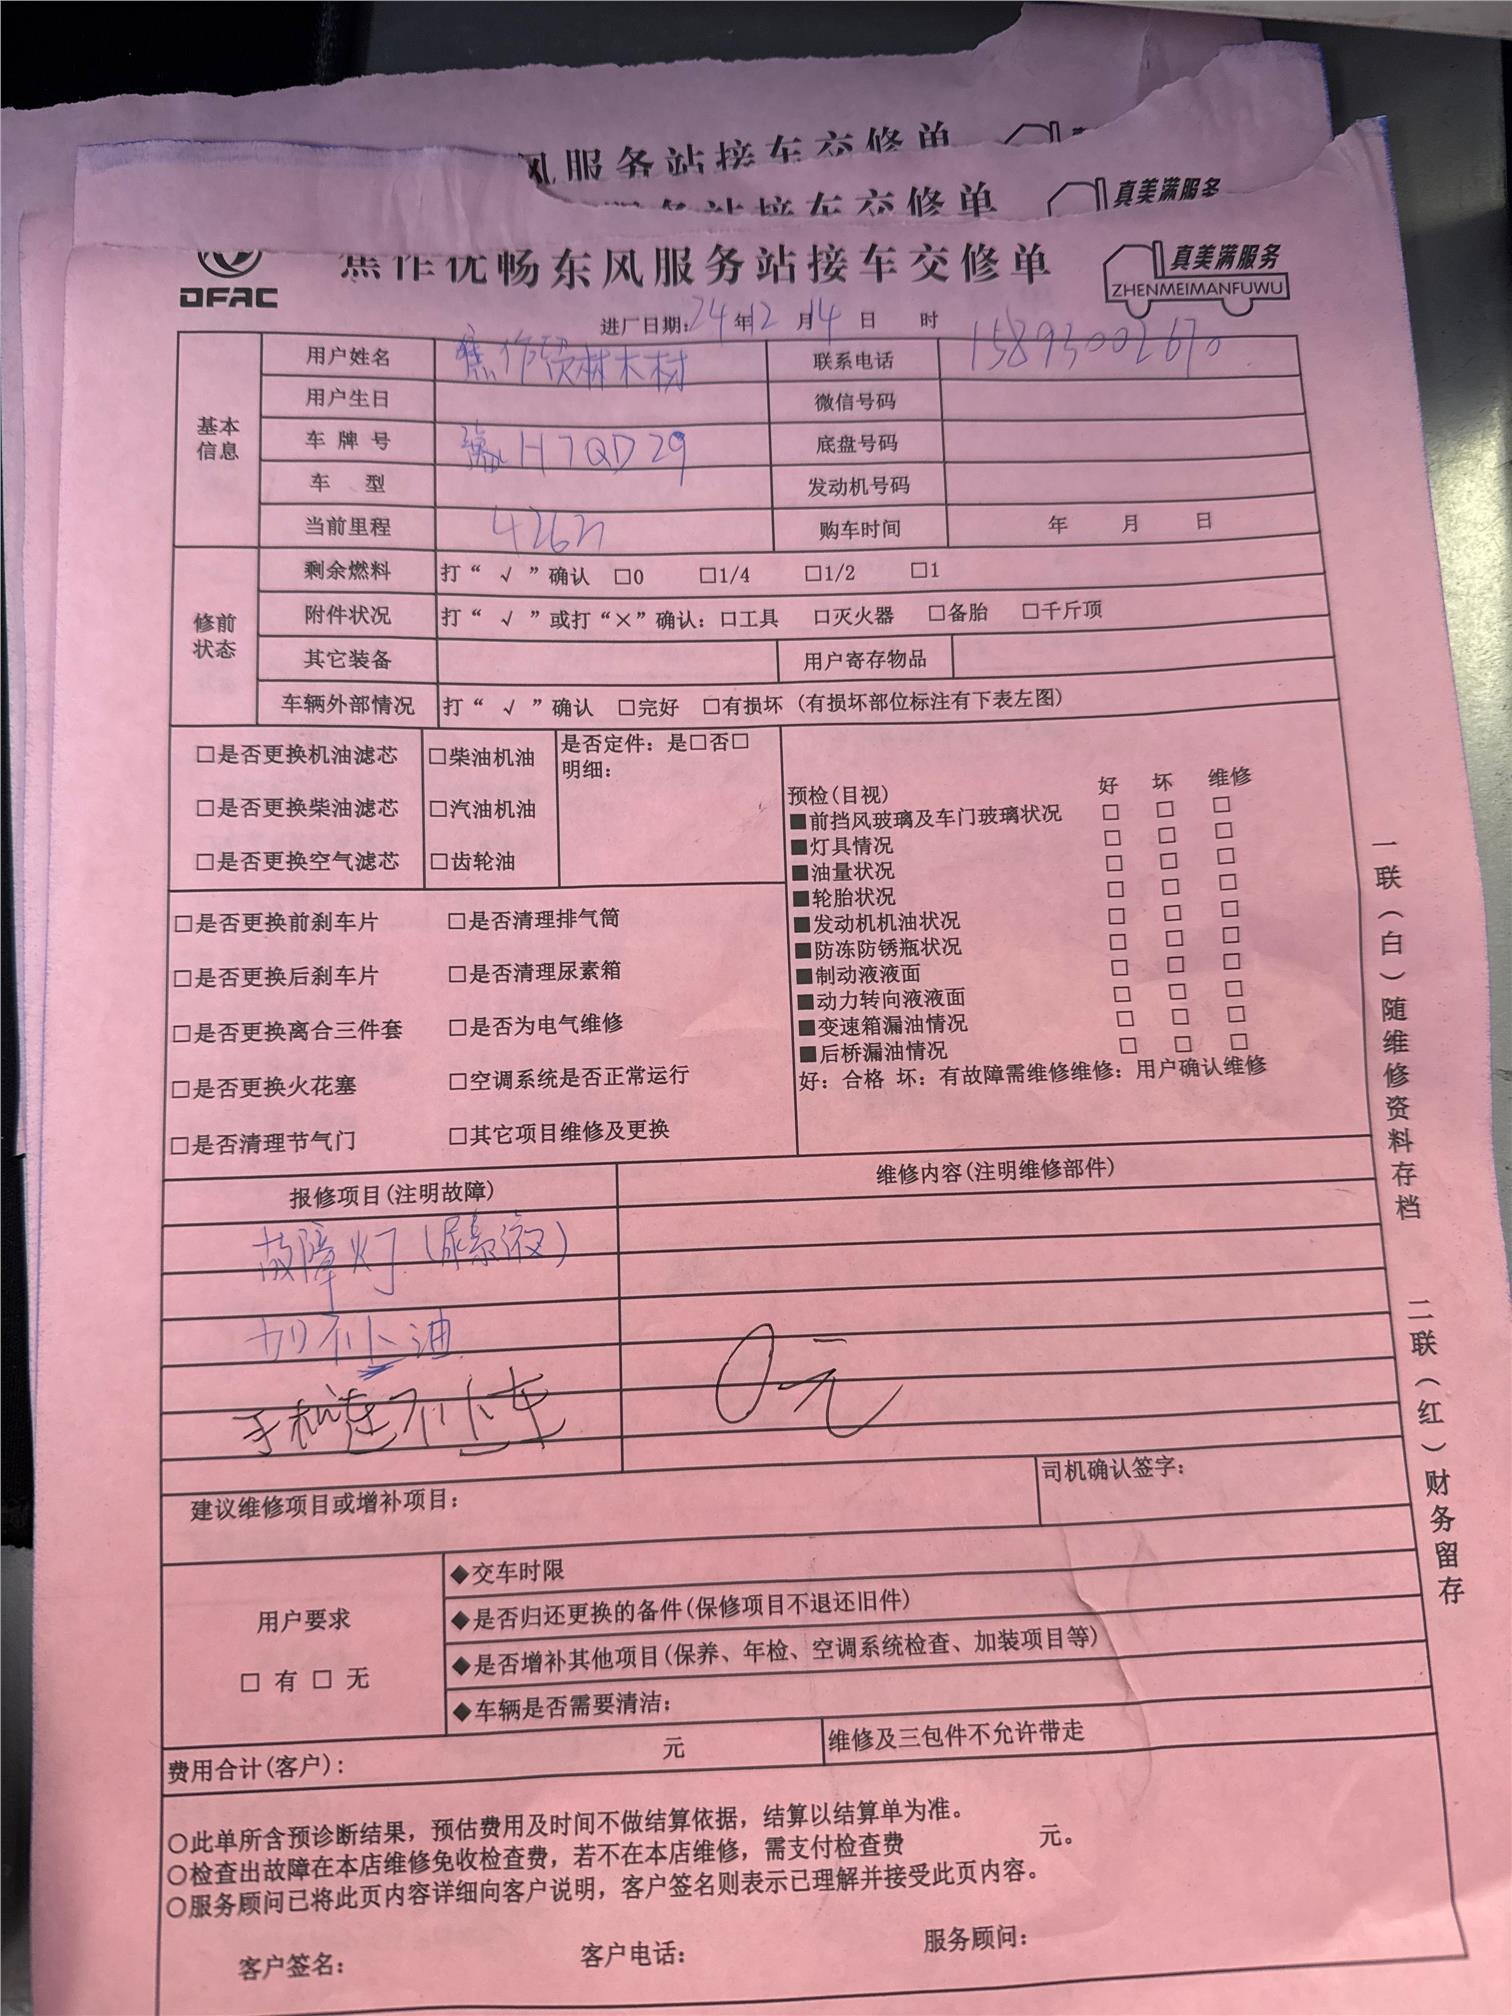 风服务站接车交修单
服务站接车交修单 真美满服务
DFAC 焦作优畅东风服务站接车交修单 真美满服务
ZHENMEIMANFUWU
进厂日期: 24 年 12 月 14 日 时
基本信息
用户姓名 焦作 林木材 联系电话 15893002670
用户生日 微信号码
车牌号 豫H7QD29 底盘号码
车型 发动机号码
当前里程 购车时间 年 月 日
修前状态
剩余燃料 打“√”确认 □0 □1/4 □1/2 □1
附件状况 打“√”或打“×”确认: □工具 □灭火器 □备胎 □千斤顶
其它装备 用户寄存物品
车辆外部情况 打“√”确认 □完好 □有损坏 (有损坏部位标注有下表左图)
□是否更换机油滤芯 □柴油机油
□是否更换柴油滤芯 □汽油机油
□是否更换空气滤芯 □齿轮油
是否定件: 是□否□
明细:
□是否更换前刹车片 □是否清理排气筒
□是否更换后刹车片 □是否清理尿素箱
□是否更换离合三件套 □是否为电气维修
□是否更换火花塞 □空调系统是否正常运行
□是否清理节气门 □其它项目维修及更换
预检(目视) 好 坏 维修
■前挡风玻璃及车门玻璃状况 □ □ □
■灯具情况 □ □ □
■油量状况 □ □ □
■轮胎状况 □ □ □
■发动机机油状况 □ □ □
■防冻防锈瓶状况 □ □ □
■制动液液面 □ □ □
■动力转向液液面 □ □ □
■变速箱漏油情况 □ □ □
■后桥漏油情况 □ □ □
好: 合格 坏: 有故障需维修维修: 用户确认维修
报修项目(注明故障) 维修内容(注明维修部件)
故障灯(尿素液)
加不上油
手机连不上车 0元
建议维修项目或增补项目: 司机确认签字:
用户要求
□ 有 □ 无
◆交车时限
◆是否归还更换的备件(保修项目不退还旧件)
◆是否增补其他项目(保养、年检、空调系统检查、加装项目等)
◆车辆是否需要清洁:
费用合计(客户): 元 维修及三包件不允许带走
○此单所含预诊断结果，预估费用及时间不做结算依据，结算以结算单为准。
○检查出故障在本店维修免收检查费，若不在本店维修，需支付检查费 元。
○服务顾问已将此页内容详细向客户说明，客户签名则表示已理解并接受此页内容。
客户签名: 客户电话: 服务顾问:
一联(白)随维修资料存档 二联(红)财务留存